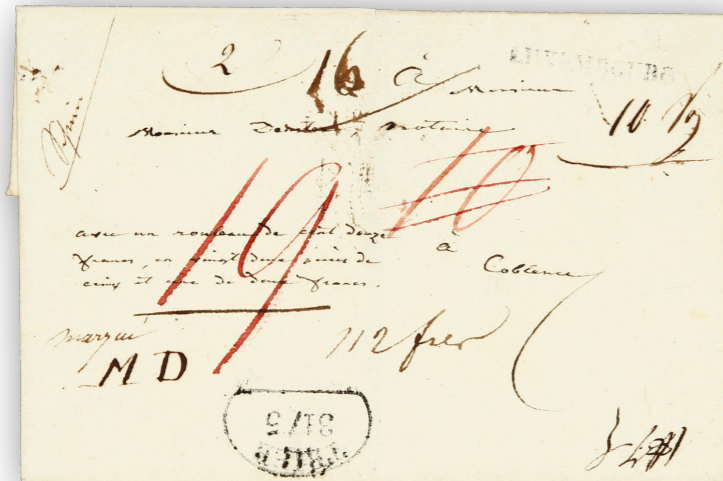 2 16 à
LUXEMBOURG
Monsieur
Monsieur notaire 10
19 10
avec un rouleau de cent douze
francs, en vingt deux pièces de
cinq et une de deux francs.
à
Coblence
marqué
M D
112 frcs
TRIER
31/5